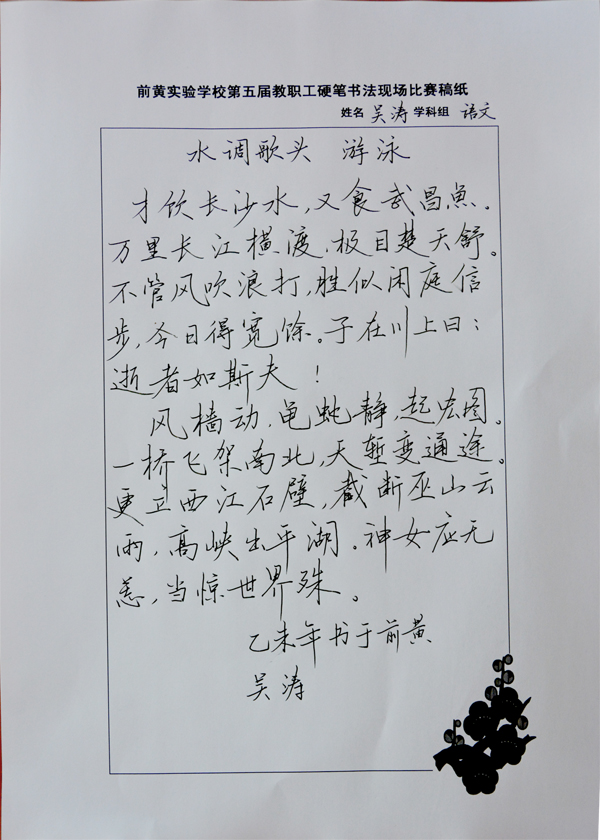 前黄实验学校第五届教职工硬笔书法现场比赛稿纸
姓名 吴涛 学科组 语文
水调歌头 游泳
才饮长沙水，又食武昌鱼。
万里长江横渡，极目楚天舒。
不管风吹浪打，胜似闲庭信
步，今日得宽馀。子在川上曰：
逝者如斯夫！
风樯动，龟蛇静，起宏图。
一桥飞架南北，天堑变通途。
更立西江石壁，截断巫山云
雨，高峡出平湖。神女应无
恙，当惊世界殊。
乙未年书于前黄
吴涛